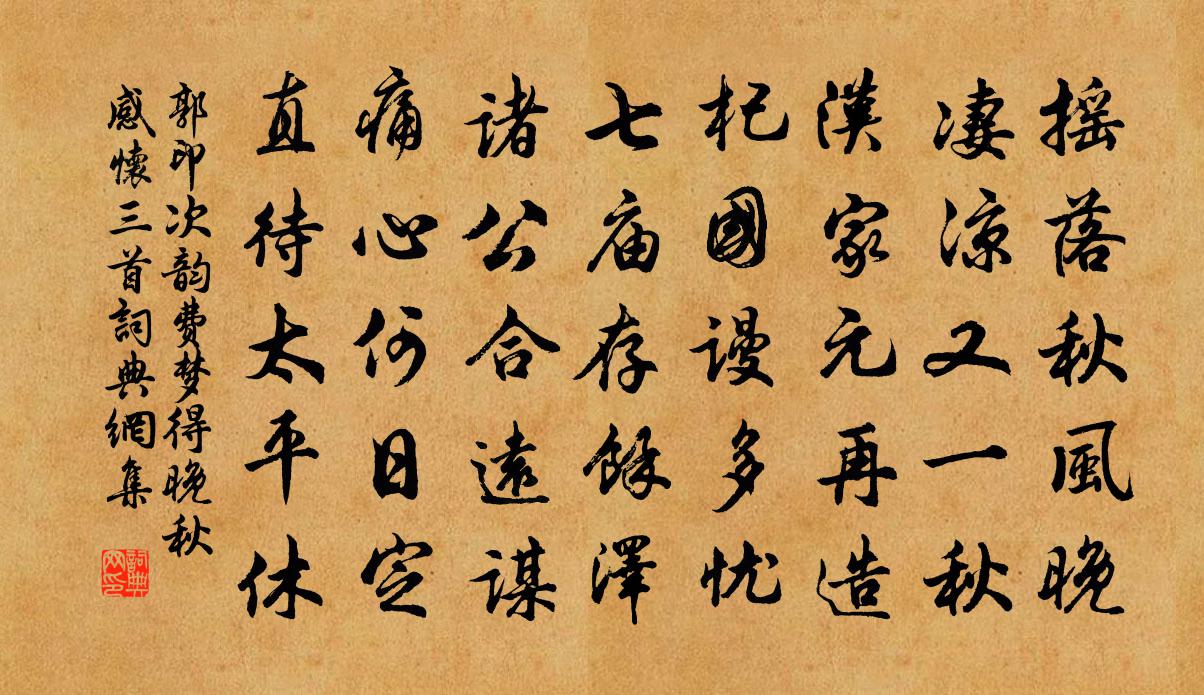 揺落秋風晚
凄凉又一秋
漢家元再造
杞國謾多忧
七庙存餘澤
诸公合遠谋
痛心何日定
直待太平休
郭印次韵费梦得晚秋
感懷三首詞典網集
詞典网印